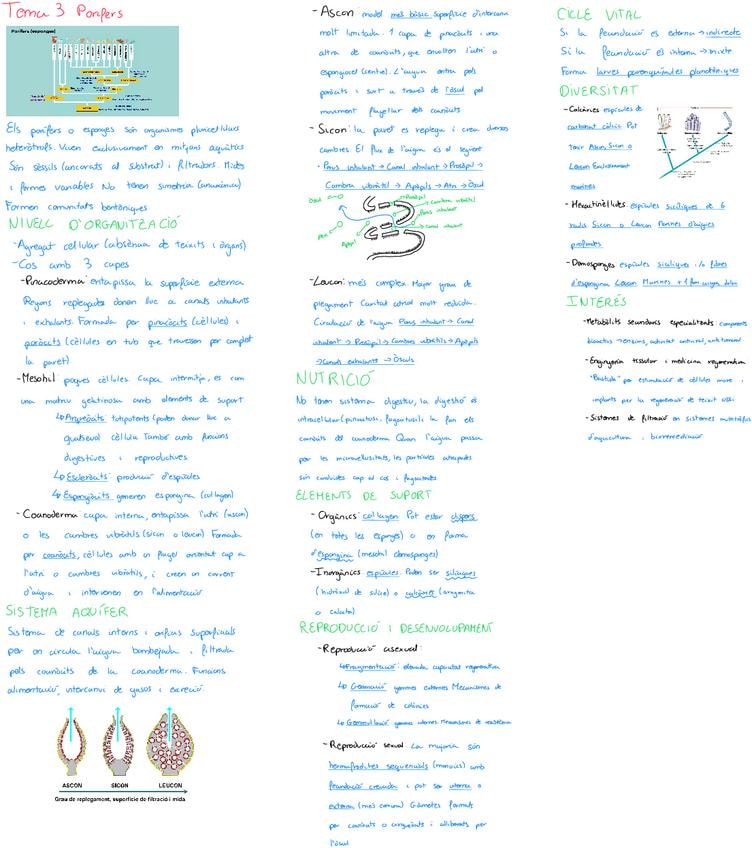 Tema 3 Porífers
Porifera (esponges)
Els porífers o esponges són organismes pluricel·lulars
heteròtrofs. Viuen exclusivament en mitjans aquàtics
Són sèssils (ancorats al substrat) i filtradors. Mides
i formes variables No tenen simetria
Formen comunitats bentòniques
NIVELL D'ORGANITZACIÓ
- Agregat cel·lular (absència de teixits i òrgans)
- Cos amb 3 capes
- Pinacoderma: entapissa la superfície externa
Regions replegades donen lloc a canals inhalants
i exhalants. Formada per pinacòcits (cèl·lules) i
poròcits (cèl·lules en tub que travessen per complet
la paret)
- Mesohil: poques cèl·lules Capa intermitja, es com
una matriu gelatinosa amb elements de suport
↳ Arqueòcits: totipotents (poden donar lloc a
qualsevol cèl·lula També amb funcions
digestives i reproductives
↳ Escleròcits: producció d'espícules
↳ Espongiòcits generen espongina (col·lagen)
- Coanoderma capa interna, entapissa l'atri (ascon)
o les cambres vibràtils (sicon o leucon) Formada
per coanòcits, cèl·lules amb un flagel orientat cap a
l'atri o cambres vibràtils, i creen un corrent
d'aigua i intervenen en l'alimentació
SISTEMA AQÜÍFER
Sistema de canals interns i orificis superficials
per on circula l'aigua bombejada i filtrada
pels coanòcits de la coanoderma. Funcions
alimentació, intercanvi de gasos i excreció.
ASCON SICON LEUCON
Grau de replegament, superfície de filtració i mida
- Ascon model més bàsic Superfície d'intercanvi
molt limitada. 1 capa de pinacòcits i una
altra de coanòcits, que envolten l'atri o
espongiocel (centre). L'aigua entra pels
poròcits i surt a través de l'òscul pel
moviment flagel·lar dels coanòcits
- Sicon: la paret es replega i crea diverses
cambres El flux de l'aigua és el següent
· Porus inhalant → Canal inhalant → Prosòpil →
Cambra vibràtil → Apòpils → Atri → Òscul
Òscul
Prosòpil
Cambra vibràtil
Porus inhalant
Canal inhalant
Atri
Apòpil
- Leucon: més complex Major grau de
plegament Cavitat atrial molt reduïda.
Circulació de l'aigua Porus inhalant → Canal
inhalant → Prosòpil → Cambres vibràtils → Apòpils
→ Canals exhalants → Òsculs
NUTRICIÓ
No tenen sistema digestiu, la digestió és
intracel·lular (pinocitosi, fagocitosi) i la fan els
coanòcits del coanoderma Quan l'aigua passa
per les microvellositats, les partícules atrapades
són conduïdes cap al cos i fagocitades
ELEMENTS DE SUPORT
- Orgànics: col·lagen Pot estar dispers
(en totes les esponges) o en forma
d'espongina (mesohil demosponges)
- Inorgànics espícules: Poden ser silíciques
(hidròxid de silice) o calcàries (aragonita
o calcita)
REPRODUCCIÓ i DESENVOLUPAMENT
- Reproducció asexual:
↳ Fragmentació: elevada capacitat regenerativa
↳ Gemmació gemmes externes Mecanismes de
formació de colònies
↳ Gemmulació gemmes internes Mecanismes de resistència
- Reproducció sexual La majoria són
hermafrodites seqüencials (monoics) amb
fecundació creuada i pot ser interna o
externa (més comuna) Gàmetes formats
per coanòcits o arqueòcits i alliberats per
l'òscul
CICLE VITAL
Si la fecundació és externa → indirecte
Si la fecundació és interna → mixte
Forma larves parenquímules planctòniques
DIVERSITAT
- Calcàries espícules de
carbonat càlcic Pot
tenir Ascon, Sicon o
Leucon Exclusivament
marines
- Hexactinèl·lides: espícules silíciques de 6
radis Sicon o Leucon Pròpies d'aigües
profundes
- Demosponges espícules silíciques i/o fibres
d'espongina Leucon Marines + 1 fam aigua dolça
INTERÉS
- Metabòlits secundaris especialitzats components
bioactius → enzims, activitat antiviral, antitumoral
- Enginyeria tissular i medicina regenerativa
"Bastida" per estimulació de cèl·lules mare i
implants per la regeneració de teixit ossi.
- Sistemes de filtració en sistemes
d'aqüicultura i bioremediació